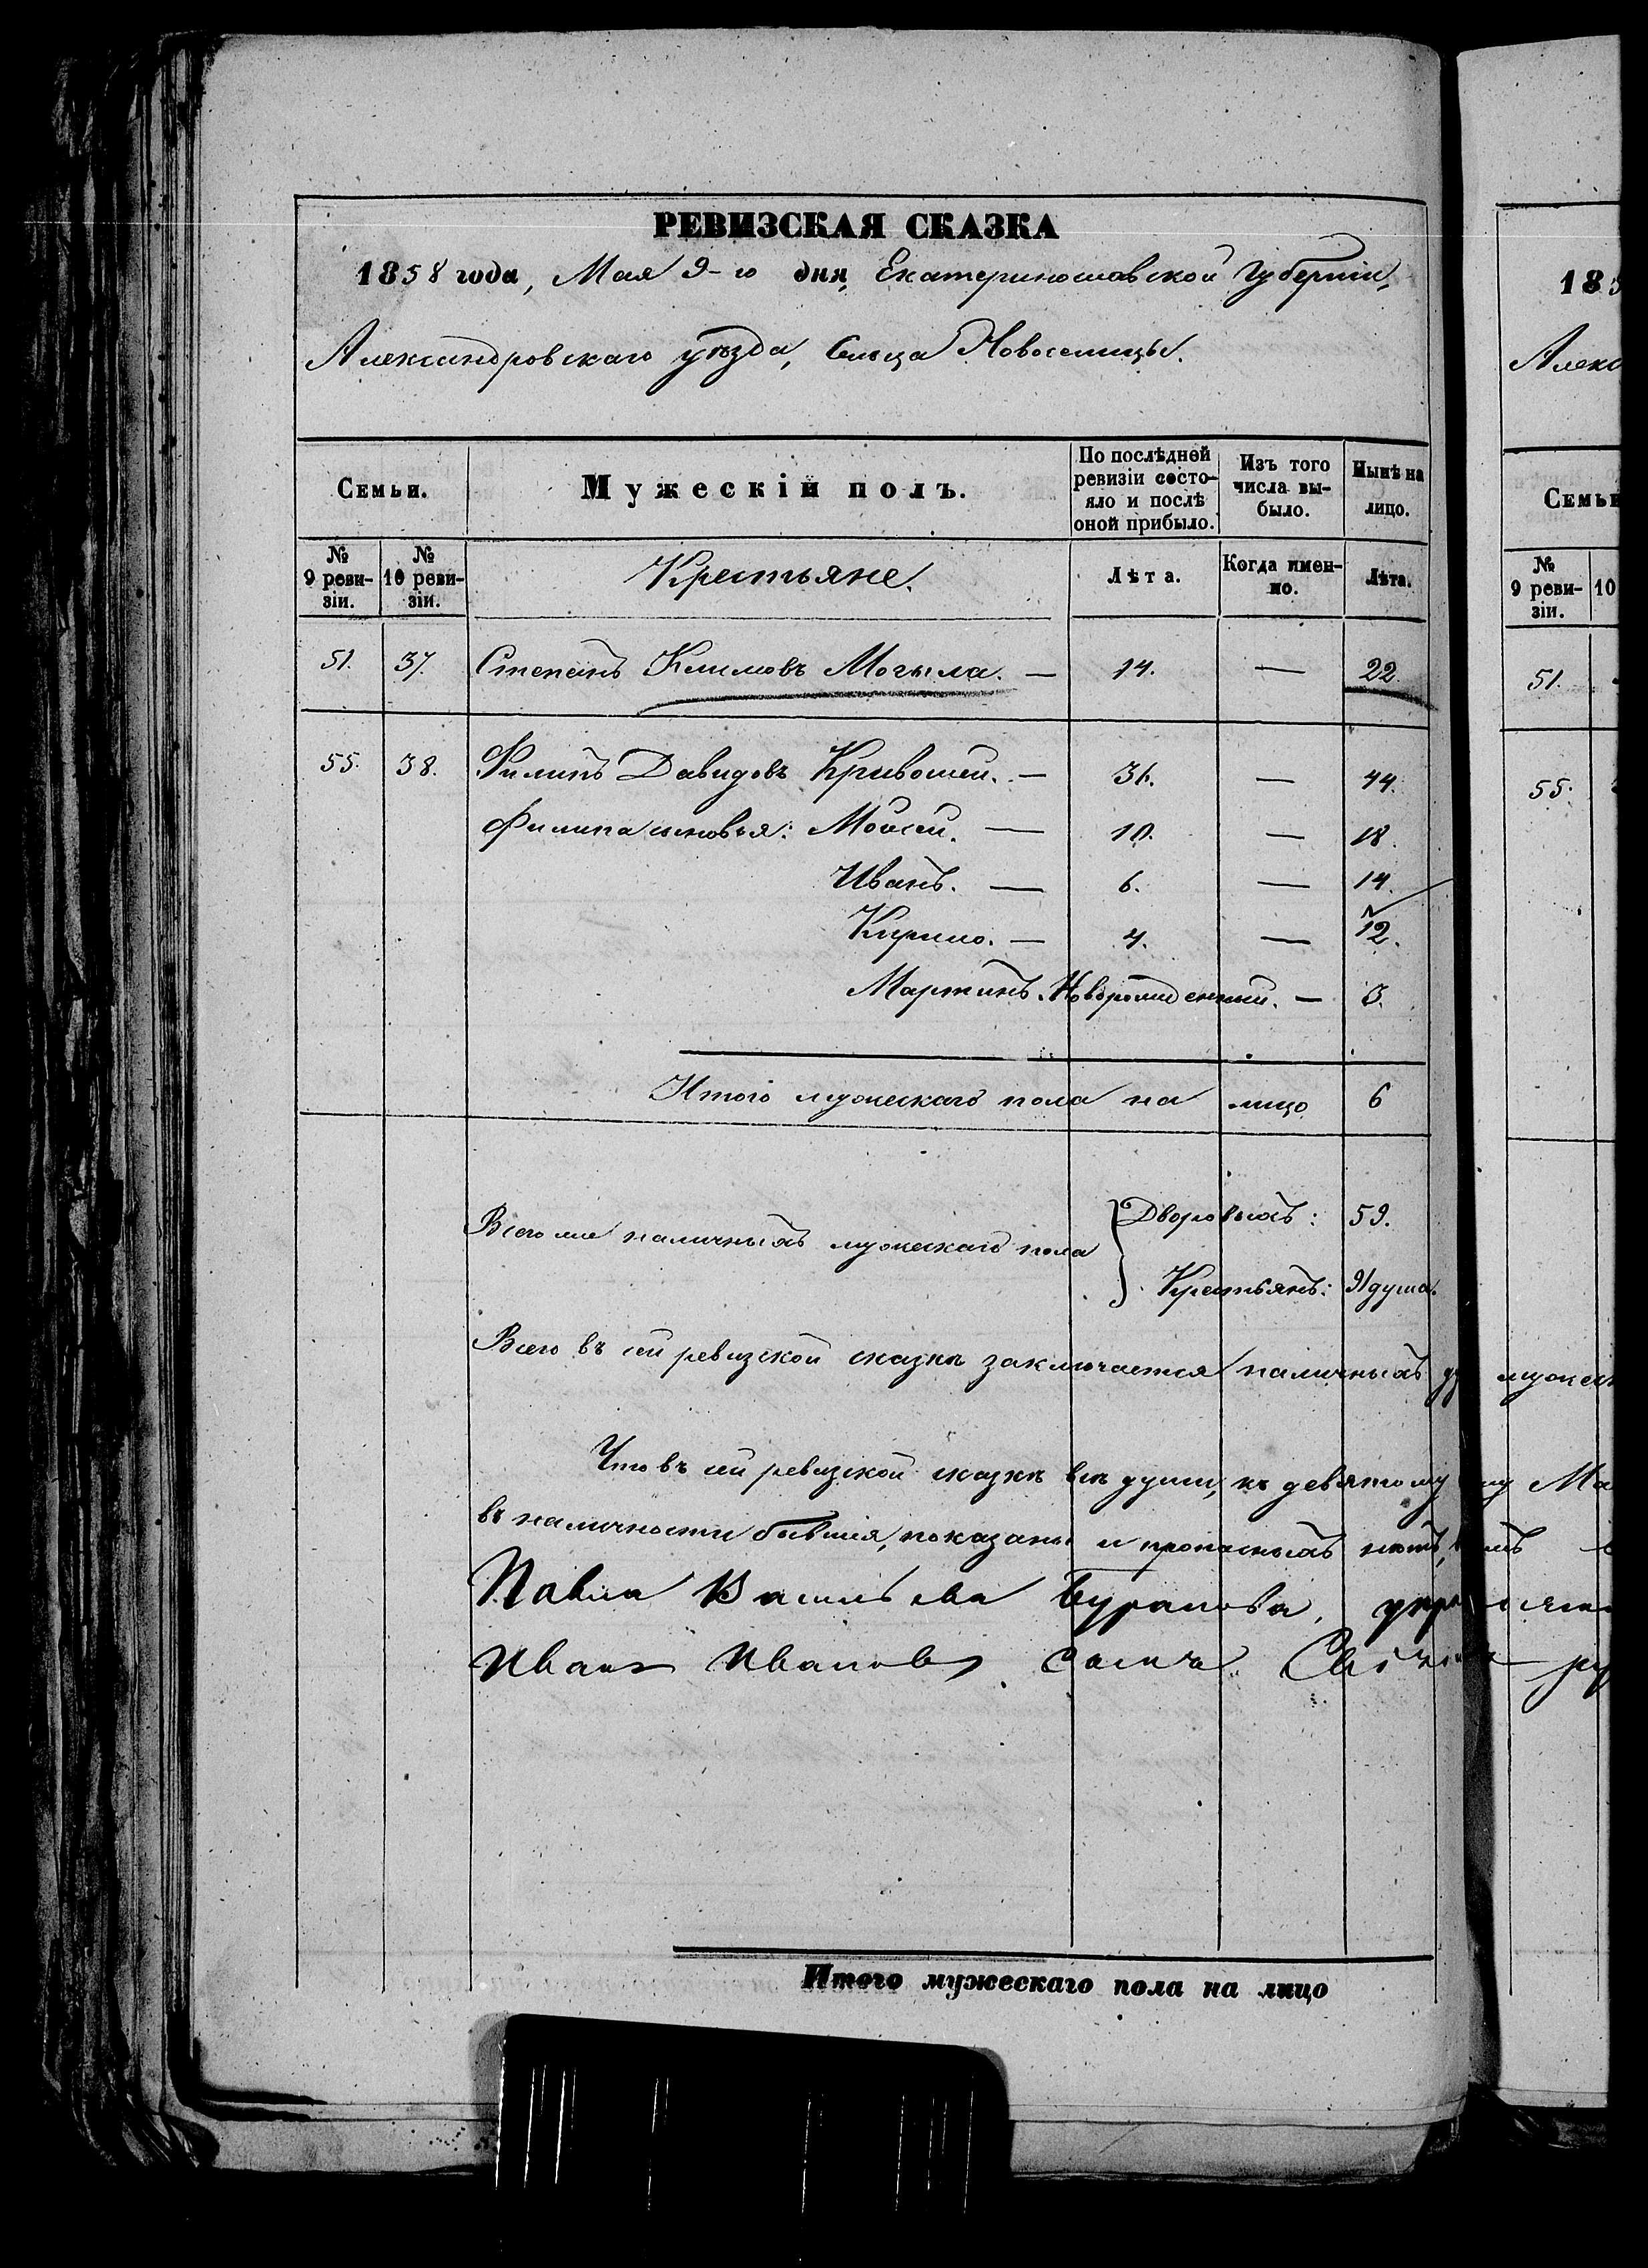 РЕВИЗСКАЯ СКАЗКА
1858 года, Мая 9-го дня, Екатеринославской Губерніи,
Александровскаго уѣзда, Сельца Новоселицы.
Семьи. Мужескій полъ. По послѣдней ревизіи состояло и послѣ оной прибыло. Изъ того числа выбыло. Нынѣ на лицо.
№ 9 ревизіи. № 10 ревизіи. Крестьяне. Лѣта. Когда именно. Лѣта.
51. 37. Степанъ Климовъ Могыла. — 14. — 22.
55. 38. Филипъ Давидовъ Кривошей. — 36. — 44.
Филипа сыновья: Мойсей. — 10. — 18.
Иванъ. — 6. — 14.
Кирило. — 4. — 12.
Мартинъ. Новорожденный. — 3.
Итого мужескаго пола на лицо 6
Всего же наличныхъ мужескаго пола
Дворовыхъ: 59.
Крестьянъ: 91 душа.
Всего въ сей ревизской сказкѣ заключается наличныхъ
Что въ сей ревизской сказкѣ всѣ души, къ девятому
въ наличности бывшія, показаны и прописныхъ нѣтъ,
Павла Васильева
Иванъ Ивановъ сынъ
Итого мужескаго пола на лицо
185
Алекс
Семьи
№ 9 ревизіи. 10
51.
55.